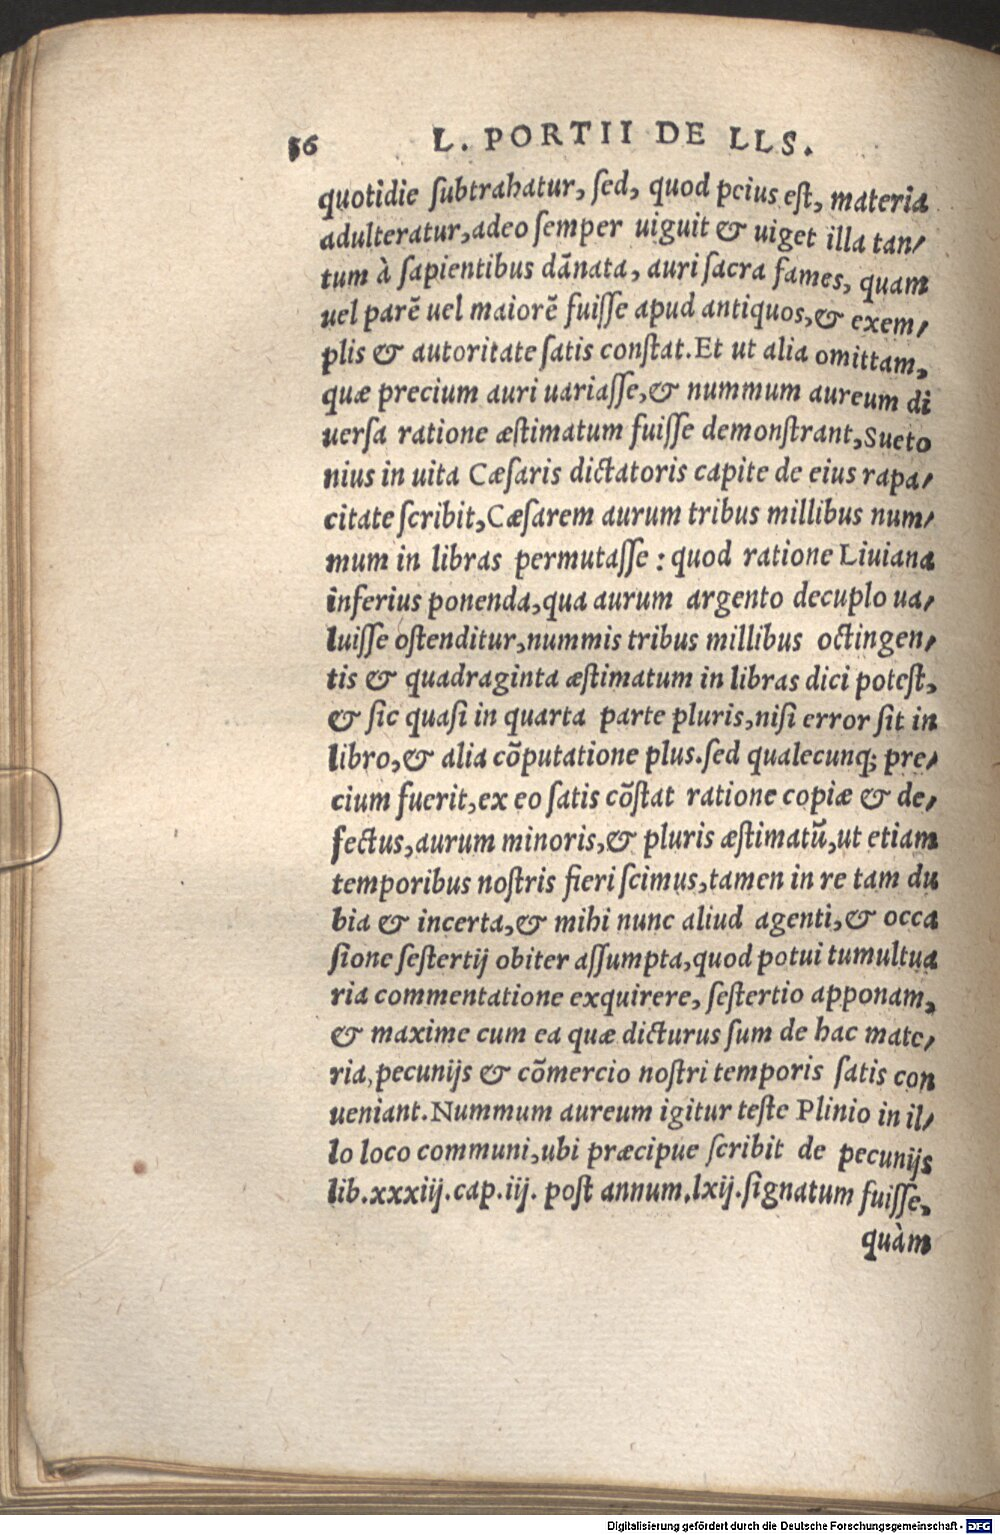 56 L. PORTII DE LLS.
quotidie ſubtrahatur, ſed, quod peius eſt, materia
adulteratur, adeo ſemper uiguit & uiget illa tan⸗
tum à ſapientibus dānata, auri ſacra fames, quam
uel parē uel maiorē fuiſſe apud antiquos, & exem⸗
plis & autoritate ſatis conſtat. Et ut alia omittam,
quæ precium auri uariaſſe, & nummum aureum di
uerſa ratione æſtimatum fuiſſe demonſtrant, Sueto
nius in uita Cæſaris dictatoris capite de eius rapa⸗
citate ſcribit, Cæſarem aurum tribus millibus num⸗
mum in libras permutaſſe : quod ratione Liuiana
inferius ponenda, qua aurum argento decuplo ua⸗
luiſſe oſtenditur, nummis tribus millibus octingen⸗
tis & quadraginta æſtimatum in libras dici poteſt,
& ſic quaſi in quarta parte pluris, niſi error ſit in
libro, & alia cōputatione plus. ſed qualecunq; pre⸗
cium fuerit, ex eo ſatis cōſtat ratione copiæ & de⸗
fectus, aurum minoris, & pluris æſtimatū, ut etiam
temporibus noſtris fieri ſcimus, tamen in re tam du
bia & incerta, & mihi nunc aliud agenti, & occa
ſione ſeſtertij obiter aſſumpta, quod potui tumultua
ria commentatione exquirere, ſeſtertio apponam,
& maxime cum ea quæ dicturus ſum de hac mate⸗
ria, pecunijs & cōmercio noſtri temporis ſatis con
ueniant. Nummum aureum igitur teſte Plinio in il⸗
lo loco communi, ubi præcipue ſcribit de pecunijs
lib. xxxiij. cap. iij. poſt annum. lxij. ſignatum fuiſſe,
quàm
Digitalisierung gefördert durch die Deutsche Forschungsgemeinschaft - DFG